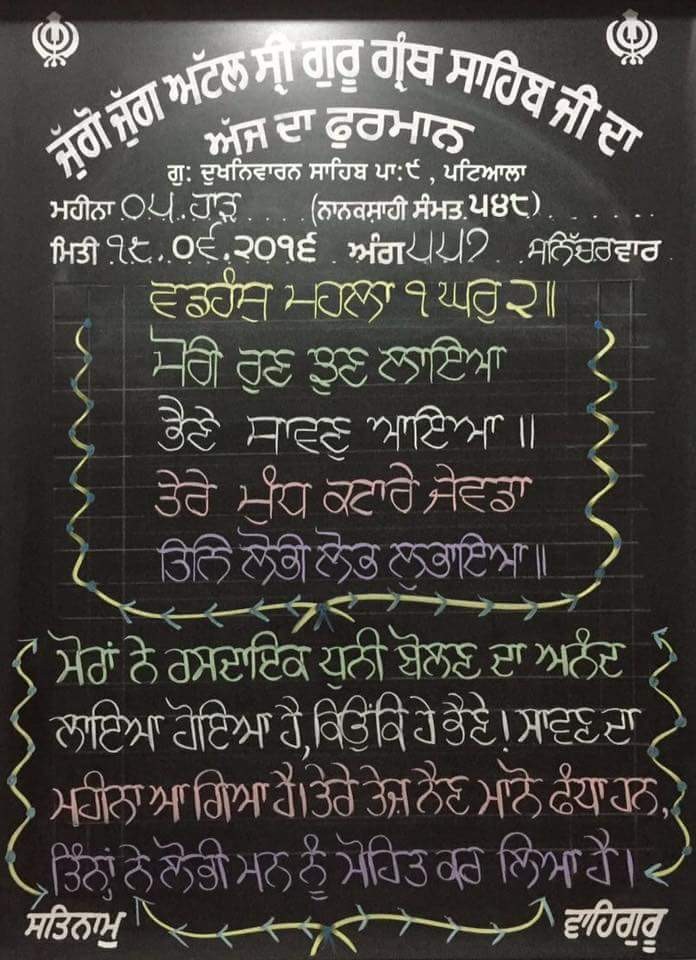 ਜੁੱਗੋ ਜੁੱਗ ਅਟੱਲ ਸ੍ਰੀ ਗੁਰੂ ਗ੍ਰੰਥ ਸਾਹਿਬ ਜੀ ਦਾ
ਅੱਜ ਦਾ ਫੁਰਮਾਨ
ਗੁ: ਦੁਖਨਿਵਾਰਨ ਸਾਹਿਬ ਪਾ:੯ , ਪਟਿਆਲਾ
ਮਹੀਨਾ ੦੫ ਹਾੜ (ਨਾਨਕਸ਼ਾਹੀ ਸੰਮਤ ੫੪੮)
ਮਿਤੀ ੧੮.੦੬.੨੦੧੬ ਅੰਗ ੫੫੭ ਸਨਿੱਚਰਵਾਰ
ਵਡਹੰਸੁ ਮਹਲਾ ੧ ਘਰੁ ੨॥
ਮੋਰੀ ਰੁਣ ਝੁਣ ਲਾਇਆ
ਭੈਣੇ ਸਾਵਣੁ ਆਇਆ ॥
ਤੇਰੇ ਮੁੰਧ ਕਟਾਰੇ ਜੇਵਡਾ
ਤਿਨਿ ਲੋਭੀ ਲੋਭ ਲੁਭਾਇਆ॥
ਮੋਰਾਂ ਨੇ ਰਸਦਾਇਕ ਧੁਨੀ ਬੋਲਣ ਦਾ ਅਨੰਦ
ਲਾਇਆ ਹੋਇਆ ਹੈ, ਕਿਉਂਕਿ ਹੇ ਭੈਣੇ! ਸਾਵਣ ਦਾ
ਮਹੀਨਾ ਆ ਗਿਆ ਹੈ। ਤੇਰੇ ਤੇਜ਼ ਨੈਣ ਮਾਨੋ ਫੰਧਾ ਹਨ,
ਤਿੰਨ੍ਹਾਂ ਨੇ ਲੋਭੀ ਮਨ ਨੂੰ ਮੋਹਿਤ ਕਰ ਲਿਆ ਹੈ।
ਸਤਿਨਾਮੁ ਵਾਹਿਗੁਰੂ